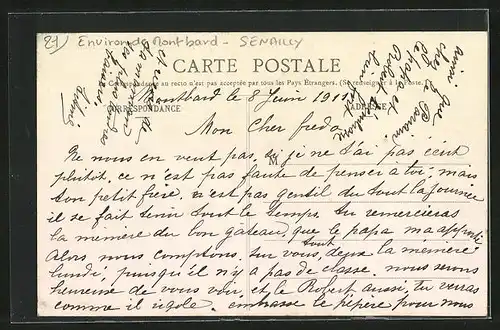 21) Environ de Montbard - SENAILLY
CARTE POSTALE
La Correspondance au recto n'est pas acceptée par tous les Pays Étrangers. (Se renseigner à la Poste)
CORRESPONDANCE ADRESSE
Montbard le 8 Juin 191
Mon Cher fredo
Ne nous en veut pas, si je ne t'ai pas écrit
plutôt, ce n'est pas faute de penser a toi, mais
ton petit frère, n'est pas gentil du tout la journée
il se fait tenir tout le temps, tu remercieras
la mémère du bon gateau, que le papa m'a apporté
Alors nous comptons sur vous deux la mémère
tout
lundi, puisqu'il n'y a pas de classe. nous serons
heureuse de vous voir, et le Robert aussi, tu verras
comme il rigole. embrasse le pépère pour nous
ainsi que
chez le
et